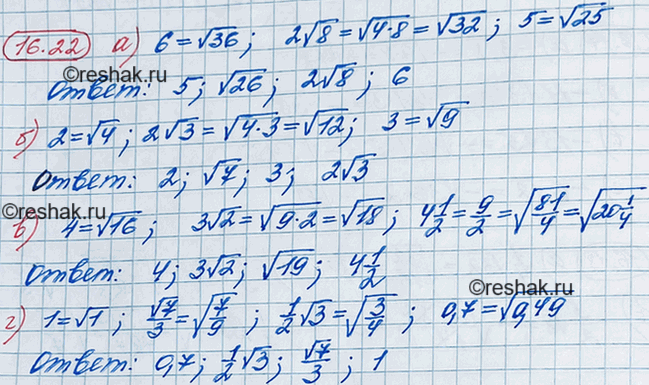 16.22 а) 6=√36; 2√8=√4·8=√32; 5=√25
©reshak.ru
Ответ: 5; √26; 2√8; 6
б) 2=√4; 2√3=√4·3=√12; 3=√9
Ответ: 2; √7; 3; 2√3
©reshak.ru
в) 4=√16; 3√2=√9·2=√18; 4 1/2=9/2=√81/4=√20 1/4
Ответ: 4; 3√2; √19; 4 1/2
©reshak.ru
г) 1=√1; √7/3=√7/9; 1/2√3=√3/4; 0,7=√0,49
Ответ: 0,7; 1/2√3; √7/3; 1